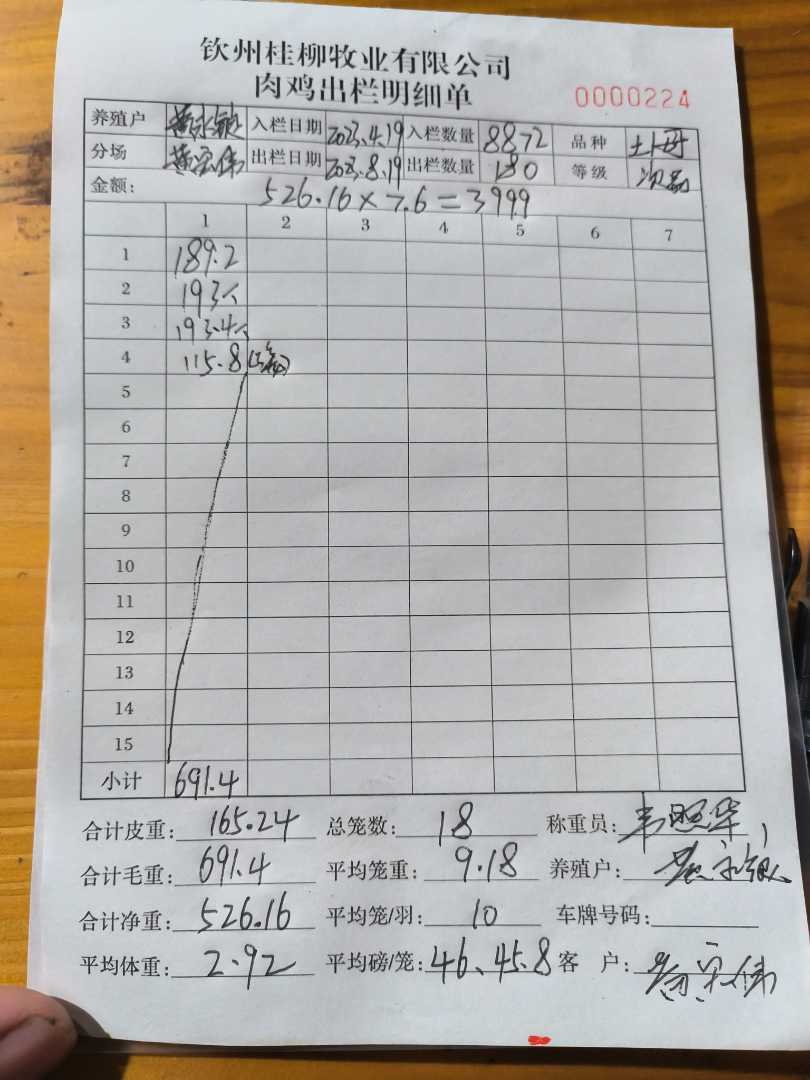 钦州桂柳牧业有限公司
肉鸡出栏明细单
0000224
养殖户 入栏日期 2023.4.19 入栏数量 8872 品种 土
分场 黄 伟 出栏日期 2023.8.19 出栏数量 180 等级 次
金额: 526.16×7.6=3999
1 2 3 4 5 6 7
1 189.2
2 193
3 193.4
4 115.8
5
6
7
8
9
10
11
12
13
14
15
小计 691.4
合计皮重: 165.24 总笼数: 18 称重员: 韦照华
合计毛重: 691.4 平均笼重: 9.18 养殖户: 黄
合计净重: 526.16 平均笼/羽: 10 车牌号码:
平均体重: 2.92 平均磅/笼: 46、45.8 客 户: 黄 伟